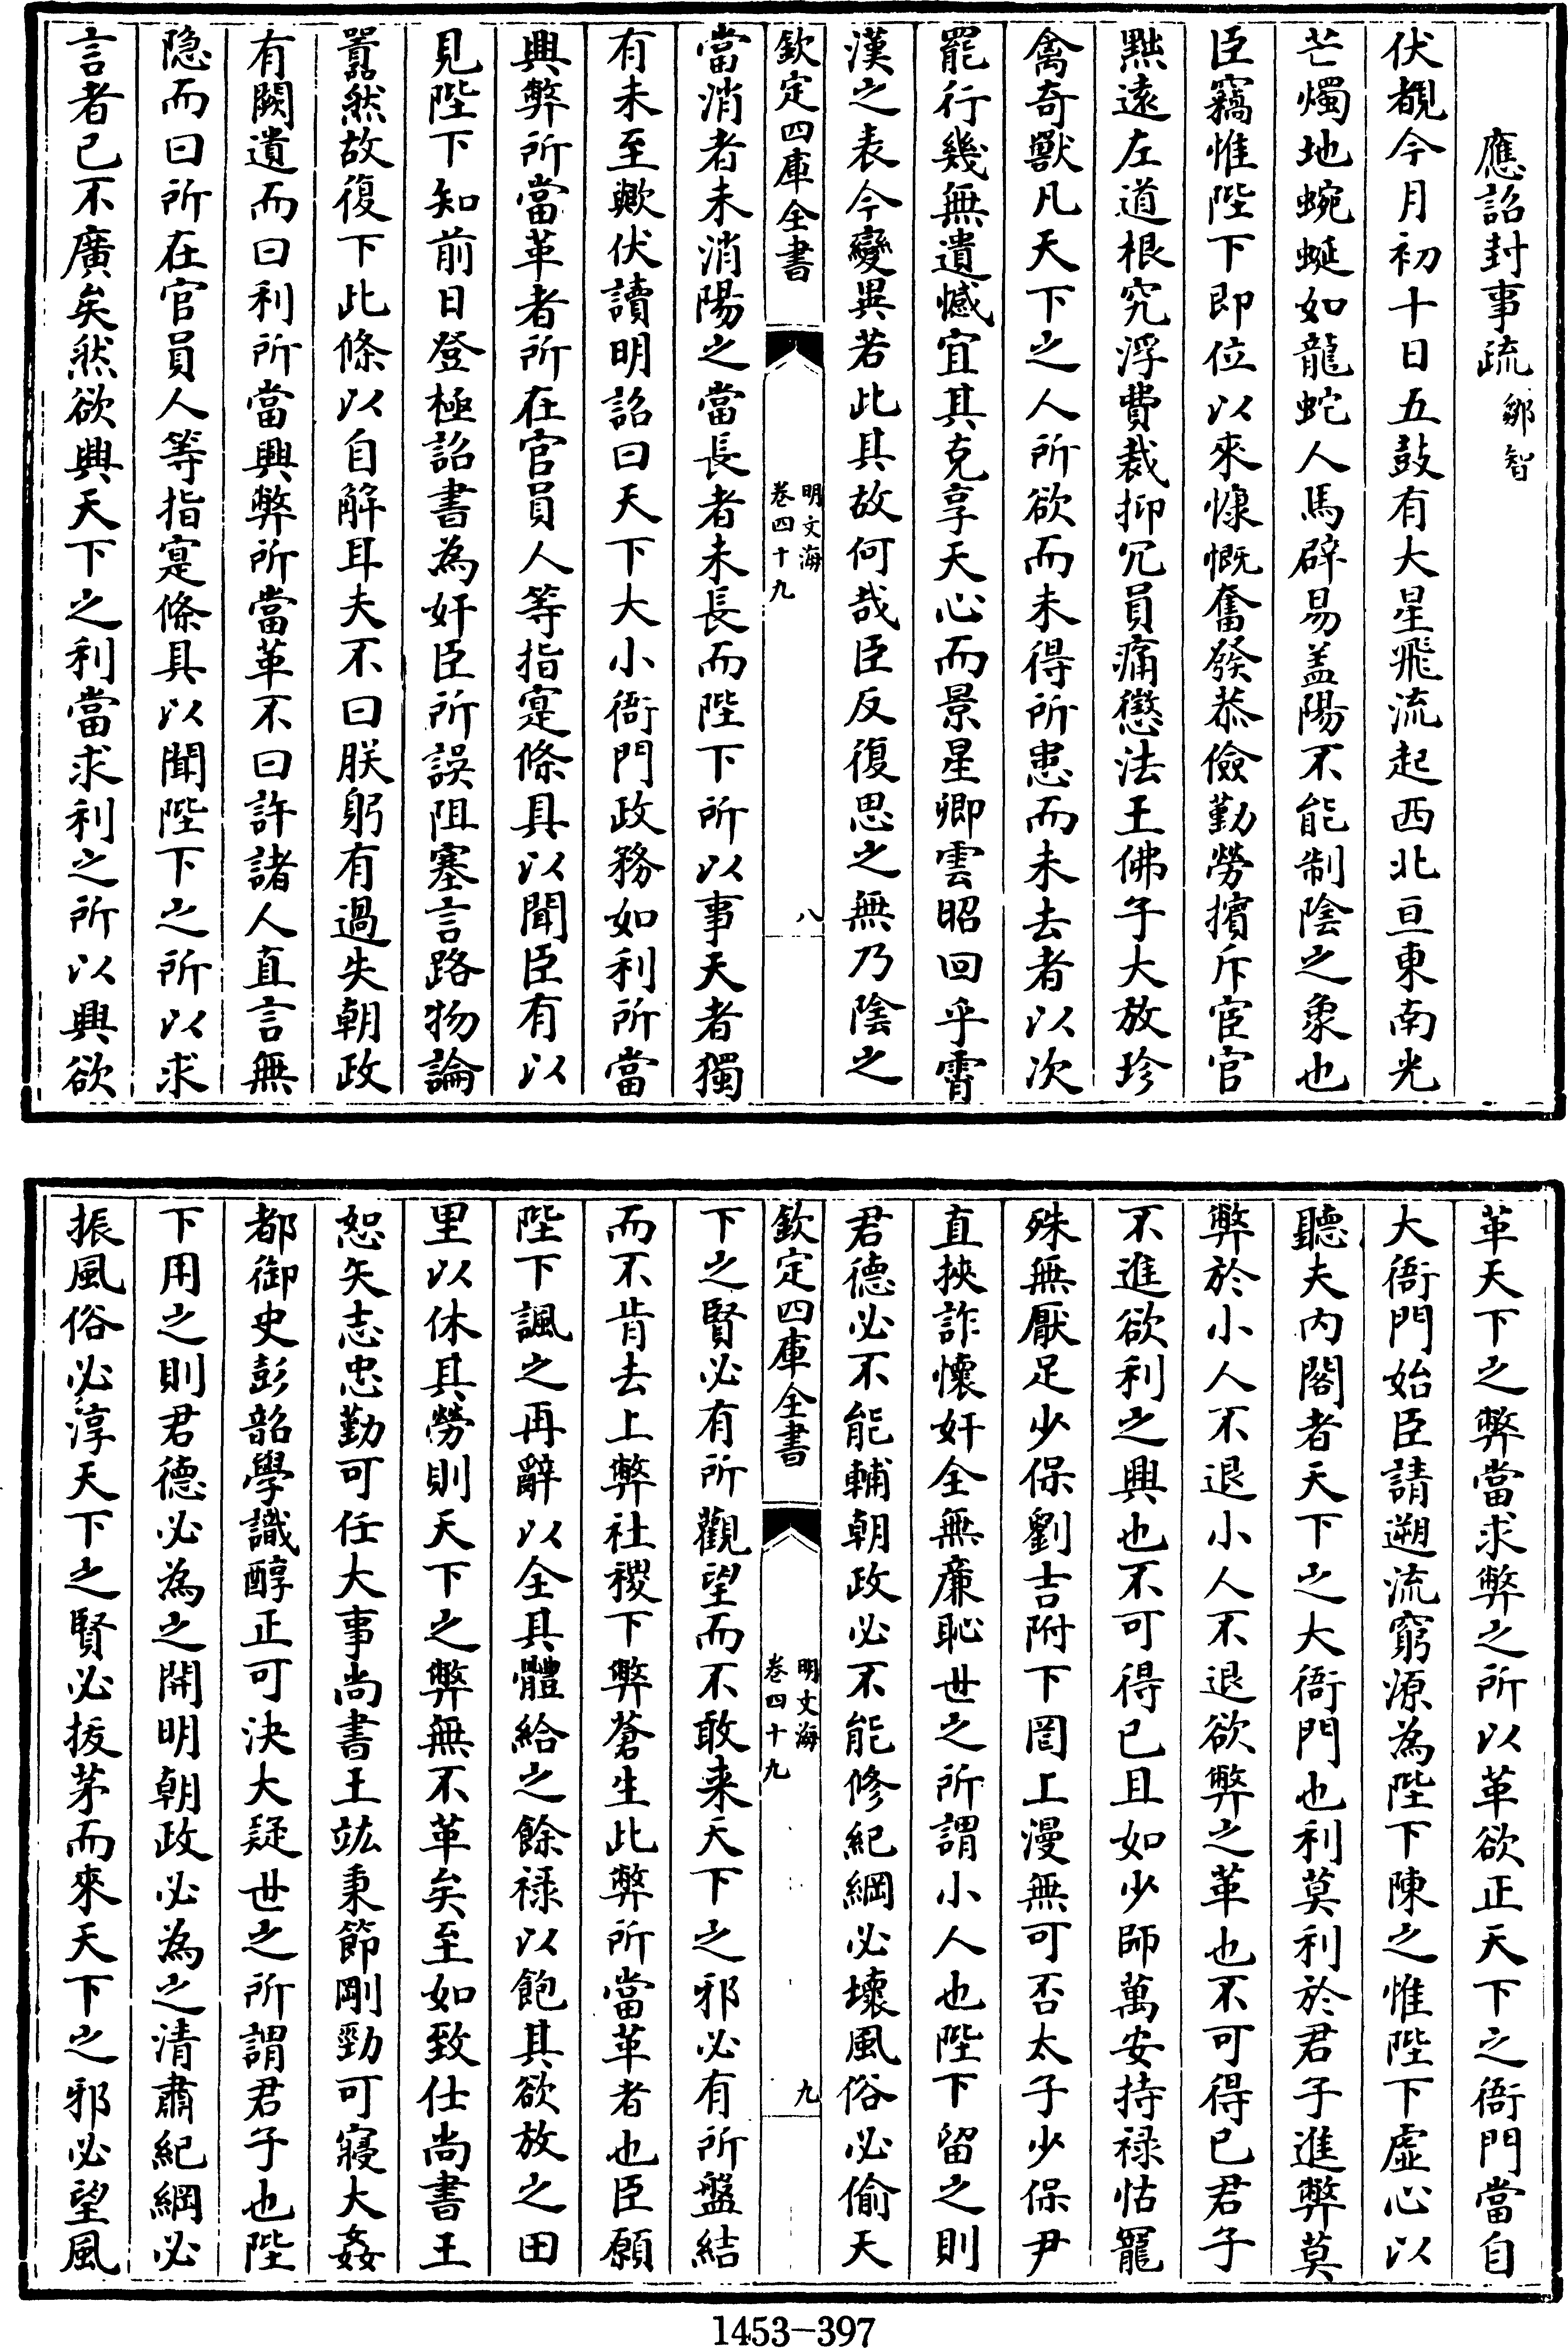 應詔封事疏 鄒智
伏覩今月初十日五鼓有大星飛流起西北亘東南光
芒燭地蜿蜒如龍蛇人馬辟易盖陽不能制陰之象也
臣竊惟陛下即位以來慷慨奮發恭儉勤勞擯斥宦官
黜遠左道根究浮費裁抑冗員痛懲法王佛子大放珍
禽奇獸凡天下之人所欲而未得所患而未去者以次
罷行幾無遺憾宜其克享天心而景星卿雲昭回乎霄
漢之表今變異若此其故何哉臣反復思之無乃陰之
欽定四庫全書
明文海
卷四十九
八
當消者未消陽之當長者未長而陛下所以事天者獨
有未至歟伏讀明詔曰天下大小衙門政務如利所當
興弊所當革者所在官員人等指寔條具以聞臣有以
見陛下知前日登極詔書為奸臣所誤阻塞言路物論
囂然故復下此條以自解耳夫不曰朕躬有過失朝政
有闕遺而曰利所當興弊所當革不曰許諸人直言無
隐而曰所在官員人等指寔條具以聞陛下之所以求
言者已不廣矣然欲興天下之利當求利之所以興欲
革天下之弊當求弊之所以革欲正天下之衙門當自
大衙門始臣請遡流窮源為陛下陳之惟陛下虛心以
聽夫內閣者天下之大衙門也利莫利於君子進弊莫
弊於小人不退小人不退欲弊之革也不可得已君子
不進欲利之興也不可得已且如少師萬安持祿怙寵
殊無厭足少保劉吉附下罔上漫無可否太子少保尹
直挾詐懷奸全無廉恥世之所謂小人也陛下留之則
君德必不能輔朝政必不能修紀綱必壞風俗必偷天
欽定四庫全書
明文海
卷四十九
九
下之賢必有所觀望而不敢来天下之邪必有所盤結
而不肯去上弊社稷下弊蒼生此弊所當革者也臣願
陛下諷之再辭以全其體給之餘祿以飽其欲放之田
里以休其勞則天下之弊無不革矣至如致仕尚書王
恕矢志忠勤可任大事尚書王竑秉節剛勁可寢大姦
都御史彭韶學識醇正可決大疑世之所謂君子也陛
下用之則君德必為之開明朝政必為之清肅紀綱必
振風俗必淳天下之賢必拔茅而來天下之邪必望風
1453-397